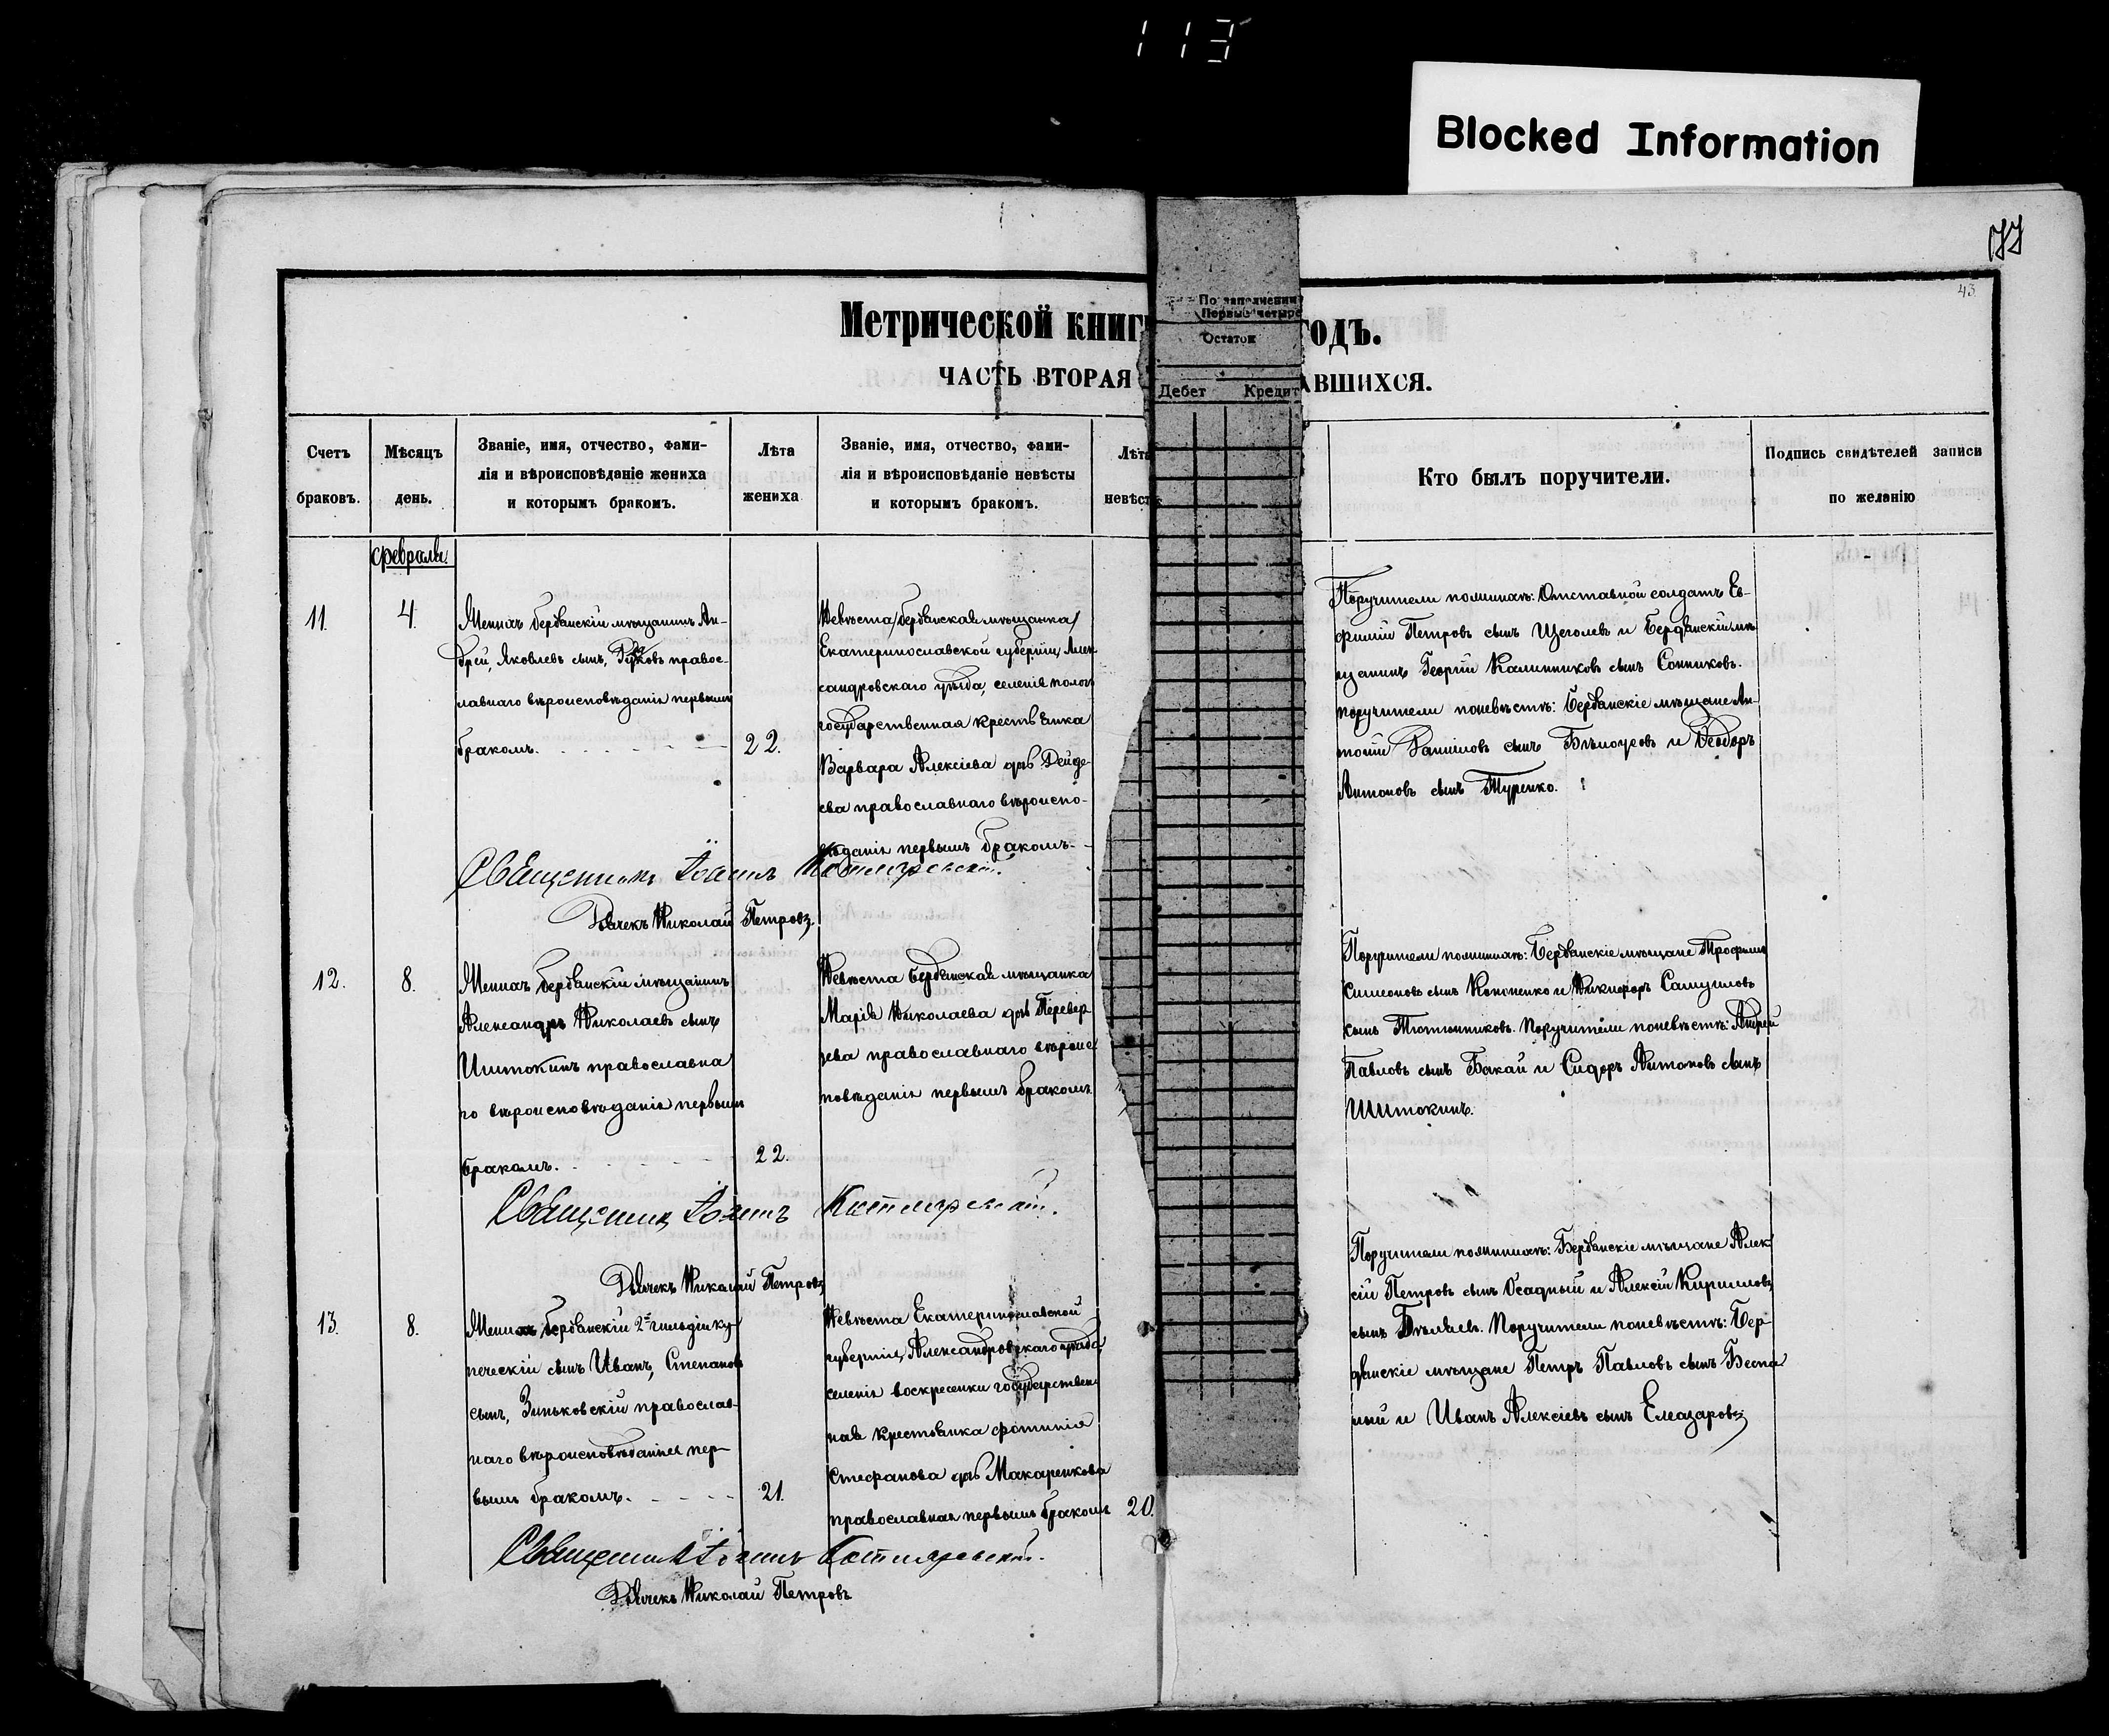 113
Blocked Information
43
Метрической книг
годъ.
ЧАСТЬ ВТОРАЯ
АВШИХСЯ.
По заполнении
Первые четыре
Остаток
Дебет Кредит
Счетъ браковъ.
Мѣсяцъ день.
Званіе, имя, отчество, фами-
лія и вѣроисповѣданіе жениха
и которымъ бракомъ.
Лѣта жениха
Званіе, имя, отчество, фами-
лія и вѣроисповѣданіе невѣсты
и которымъ бракомъ.
Лѣта
невѣст
Кто былъ поручители.
Подпись свидѣтелей записи
по желанію
Февраль.
11.
4.
Женихъ бердянскій мѣщанинъ Ан-
дрей, Яковлевъ сынъ, правос-
лавнаго вѣроисповѣданія первымъ
бракомъ.
22.
Невѣста /бердянская мѣщанка/
Екатеринославской губерніи, Алек
сандровскаго уѣзда, селенія пологъ
государственная крестьянка
Варвара Алексіева дчь Дейде-
ева православнаго вѣроиспо-
вѣданія первымъ бракомъ.
Поручители пожениху: Отставной солдатъ Ев-
фимій Петровъ сынъ Щеголевъ и Бердянскій мѣ
щанинъ Георгій Калинниковъ сынъ Сонниковъ.
Поручители поневѣстѣ: Бердянскіе мѣщане Ан-
тоній Даниловъ сынъ Бѣлоусовъ и Ѳеодоръ
Антоновъ сынъ Туренко.
Священникъ Іоаннъ Котляревскій.
Дьячекъ Николай Петровъ.
12.
8.
Женихъ бердянскій мѣщанинъ
Александръ Николаевъ сынъ
Шитокинъ православна
го вѣроисповѣданія первымъ
бракомъ.
22.
Невѣста бердянская мѣщанка
Марія Николаева дчь Перевер
зева православнаго вѣроис
повѣданія первымъ бракомъ
Поручители пожениху: Бердянскіе мѣщане Трофимъ
Симеоновъ сынъ Кононенко и Никифоръ Самуиловъ
сынъ Тютюнниковъ. Поручители поневѣстѣ: Андрей
Павловъ сынъ Бакай и Сидоръ Антоновъ сынъ
Шитокинъ.
Священникъ Іоаннъ Котляревскій.
Дьячекъ Николай Петровъ
13.
8.
Женихъ бердянскій 2й гильдіи ку-
печескій сынъ Иванъ, Степановъ
сынъ, Зиньковскій православ-
наго вѣроисповѣданія пер-
вымъ бракомъ.
21.
Невѣста Екатеринославской
губерніи, Александровскаго уѣзда,
селенія воскресенки государствен
ная крестьянка Фотинія
Стефанова дчь Макаренкова
православная первымъ бракомъ
20.
Поручители пожениху: Бердянскіе мѣщане Алек
сій Петровъ сынъ Осадный и Алексій Кирилловъ
сынъ Бѣляевъ. Поручители поневѣстѣ: Бер-
дянскіе мѣщане Петръ Павловъ сынъ Беспа
лый и Иванъ Алексіевъ сынъ Елеазаровъ
Священникъ Іоаннъ Котляревскій.
Дьячекъ Николай Петровъ